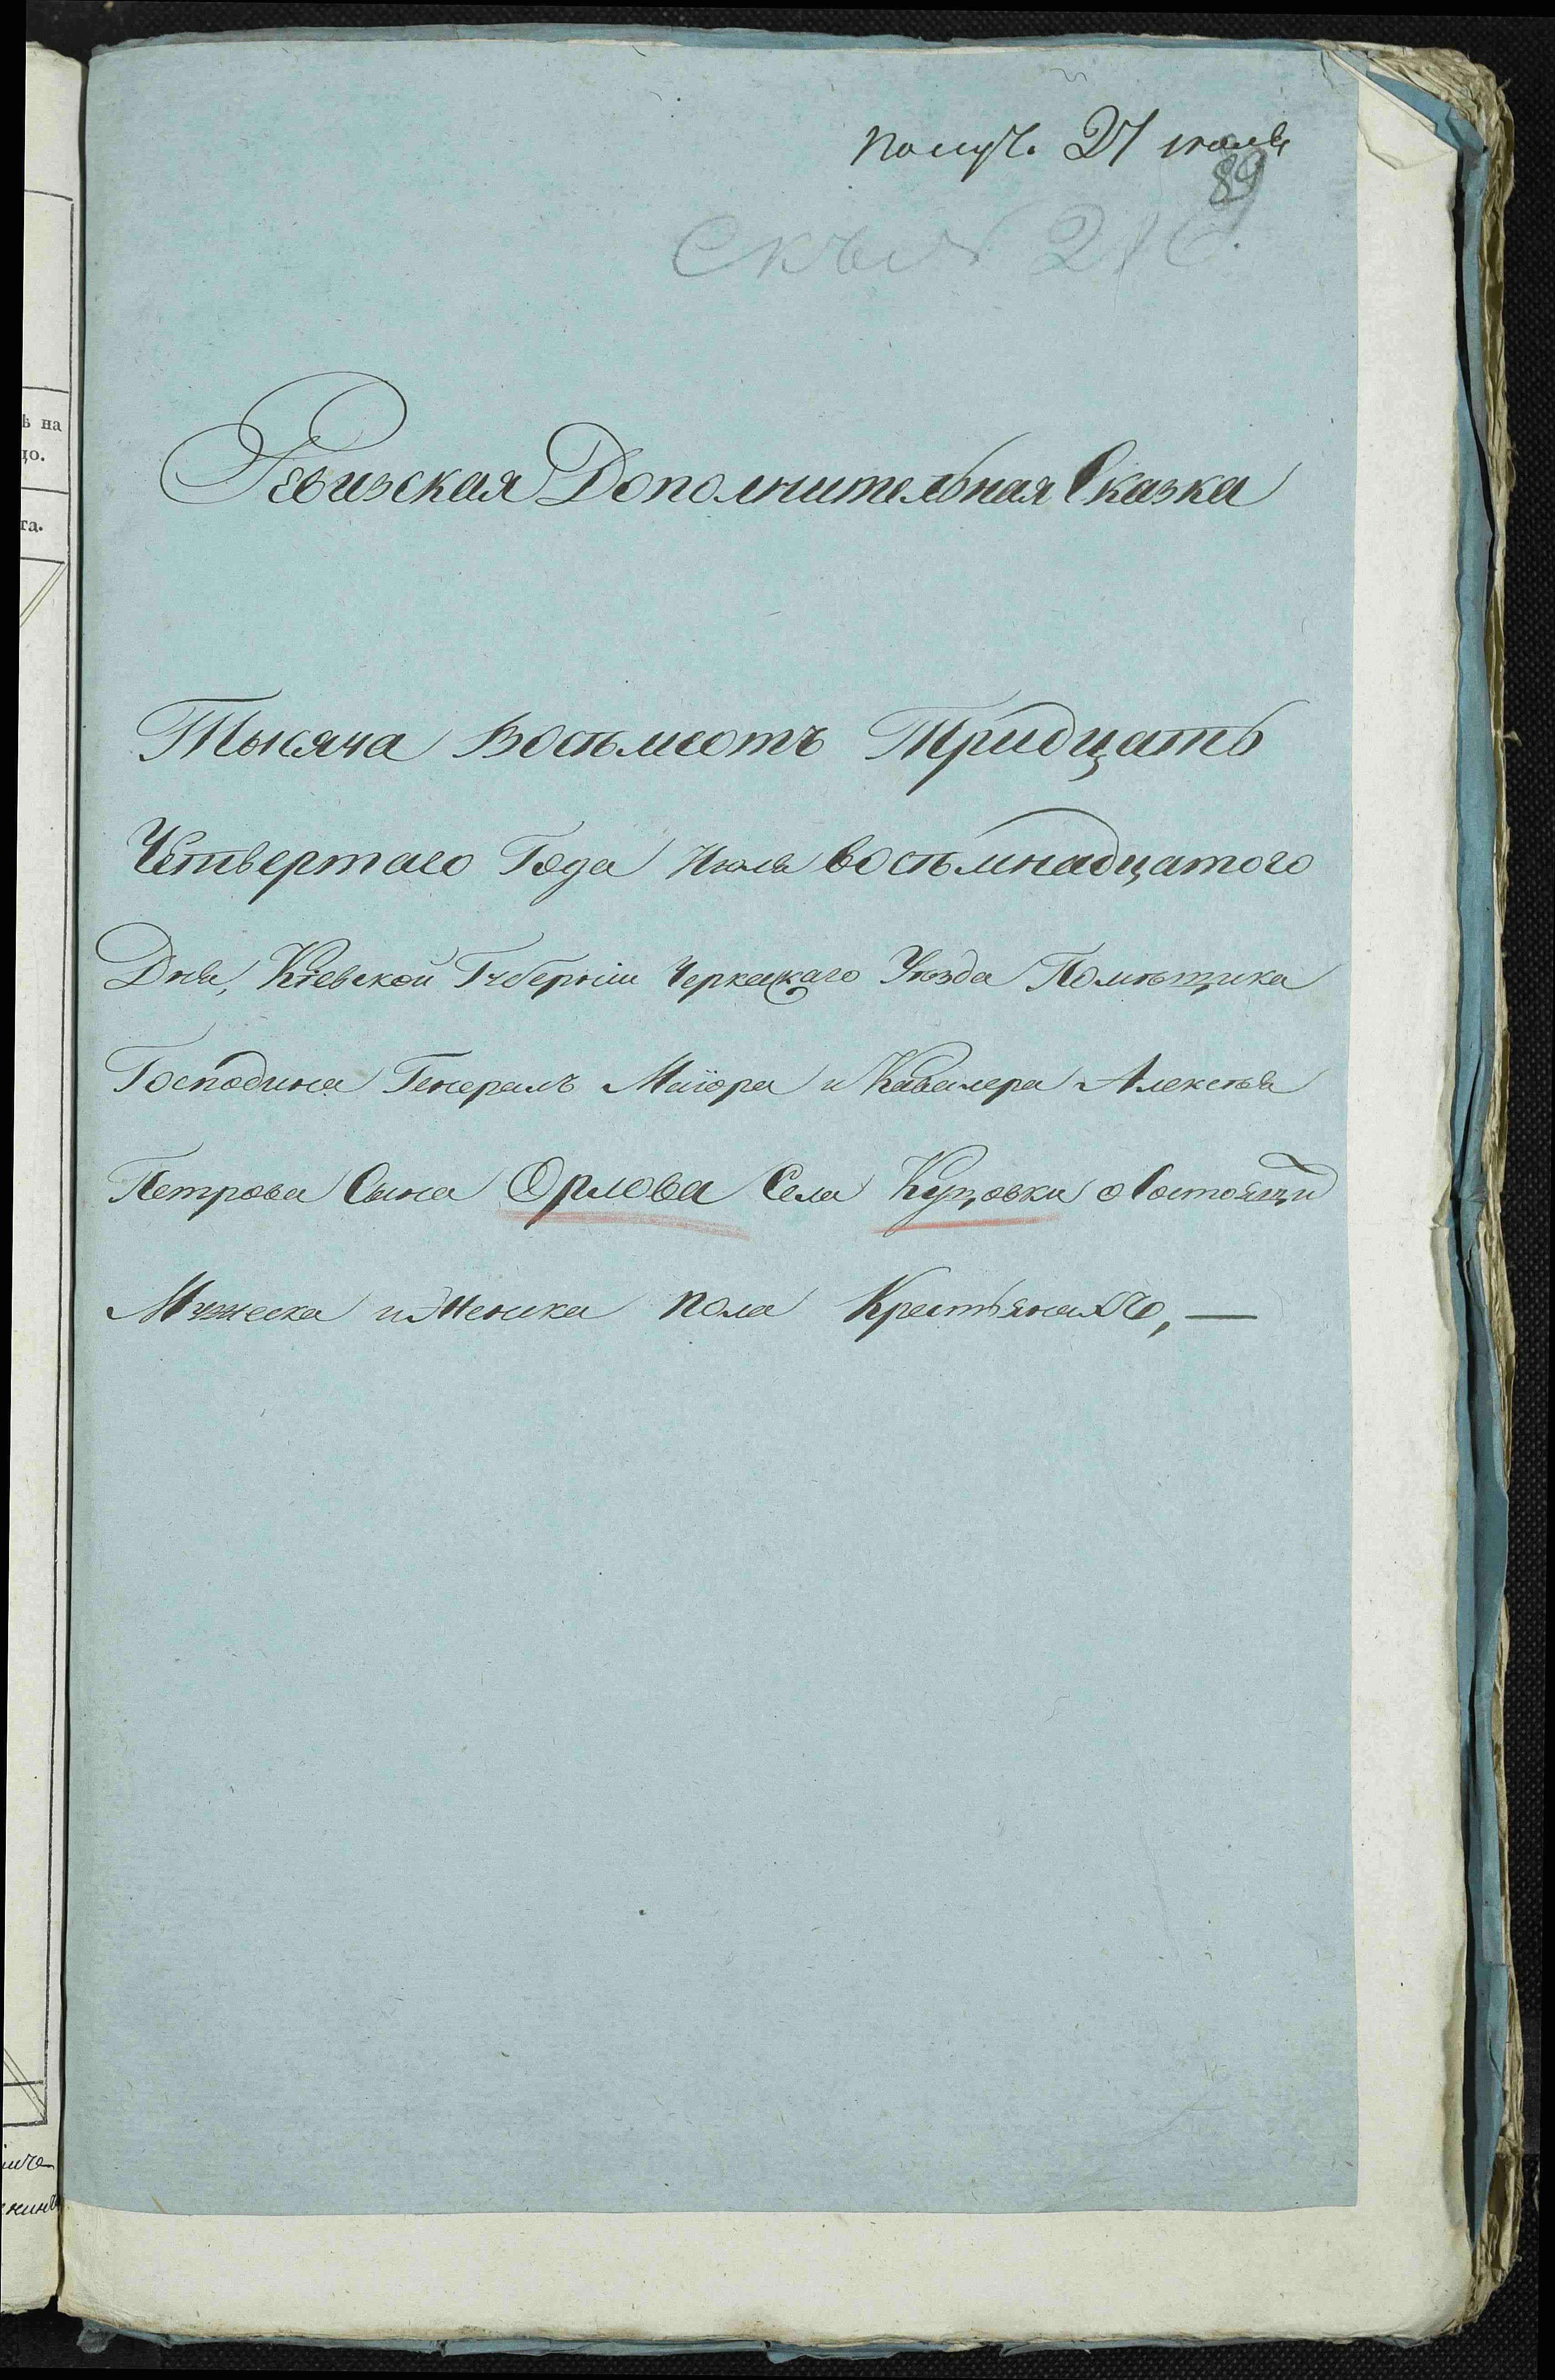 получ. 27 июля
89
Ревизская Дополнительная Сказка
Тысяча Восьмсотъ Тридцать
Четвертаго Года Июля восьмнадцатого
Дня, Кіевской Губерніи Черкаскаго Уѣзда Помѣщика
Господина Генералъ Маіора и Кавалера Алексѣя
Петрова Сына Орлова Села Куцовки о Состоящи
Мужеска и Женска пола Крестьянахъ, —
ѣ на
цо.
та.